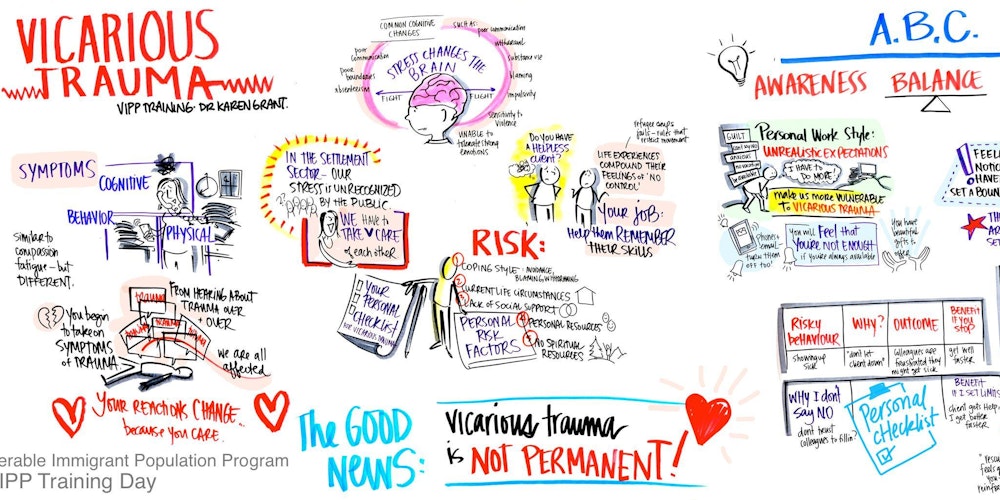 VICARIOUS
TRAUMA
VIPP TRAINING · DR KAREN GRANT.
SYMPTOMS
COGNITIVE
BEHAVIOR
PHYSICAL
similar to
compassion
fatigue - but
DIFFERENT.
You begin
to take on
SYMPTOMS
of TRAUMA
FROM HEARING ABOUT
TRAUMA OVER
+ OVER
trauma
TRAUMA
we are all
affected
YOUR REACTIONS CHANGE...
because YOU CARE.
erable Immigrant Population Program
IPP Training Day
COMMON COGNITIVE
CHANGES
SUCH AS:
poor communication
withdrawal
substance use
blaming
impulsivity
sensitivity to
violence
UNABLE to
tolerate strong
emotions
poor
communication
poor
boundaries
absenteeism
STRESS CHANGES THE
BRAIN
FIGHT
FLIGHT
IN THE SETTLEMENT
SECTOR - OUR
STRESS IS UNRECOGNIZED
BY THE PUBLIC.
WE HAVE to
TAKE CARE
of each other
DO YOU HAVE
A HELPLESS
CLIENT?
refugee camps
jails - rules that
restrict movement
LIFE EXPERIENCES
COMPOUND THEIR
FEELINGS OF 'NO
CONTROL'
YOUR JOB:
Help them REMEMBER
THEIR SKILLS
RISK:
YOUR
PERSONAL
CHECKLIST
FOR VICARIOUS TRAUMA
PERSONAL
RISK
FACTORS
1 COPING STYLE - AVOIDANCE,
BLAMING, WITHDRAWING
2 CURRENT LIFE CIRCUMSTANCES
3 LACK OF SOCIAL SUPPORT
4 PERSONAL RESOURCES
5 NO SPIRITUAL
RESOURCES
The GOOD
NEWS:
vicarious trauma
is NOT PERMANENT!
A.B.C.
AWARENESS BALANCE
GUILT
anxious
Personal Work Style:
UNREALISTIC EXPECTATIONS
I HAVE TO
DO MORE!
make us more VULNERABLE
to VICARIOUS TRAUMA
Phones +
email
TURN THEM
OFF TOO!
You will Feel that
YOU'RE NOT ENOUGH
if you're always available
You have
beautiful
gifts to
offer
FEEL
NOTIC
HAVE
SET A BOUN
TH
AR
SET
RISKY
BEHAVIOUR
WHY?
OUTCOME
BENEFIT
IF YOU
STOP
showing up
sick
"don't let
client down"
colleagues are
frustrated they
might get sick
get well
faster
WHY I don't
say NO
don't trust
colleagues to fill in?
Personal
cHecklist
BENEFIT
IF I SET LIMITS
client gets help
I get better
faster